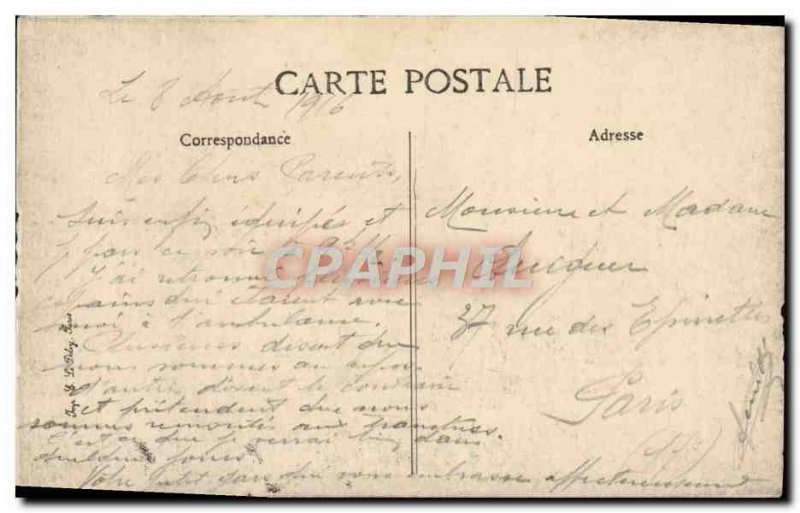 CARTE POSTALE
Le 8 Aout 1916
Correspondance
Adresse
Mes Chers Parents,
Suis enfin équipés et
ce soir
J'ai retrouvé
copains qui étaient avec
moi à l'ambulance.
Plusieurs disent que
nous sommes au repos
d'autre disent le contraire
et prétendent que nous
sommes remontés aux tranchées.
C'est ce que je verrai bien dans
quelques jours
Votre petit gars qui vous embrasse affectueusement
Monsieur et Madame
37 rue des Epinettes
Paris
CPAPHIL